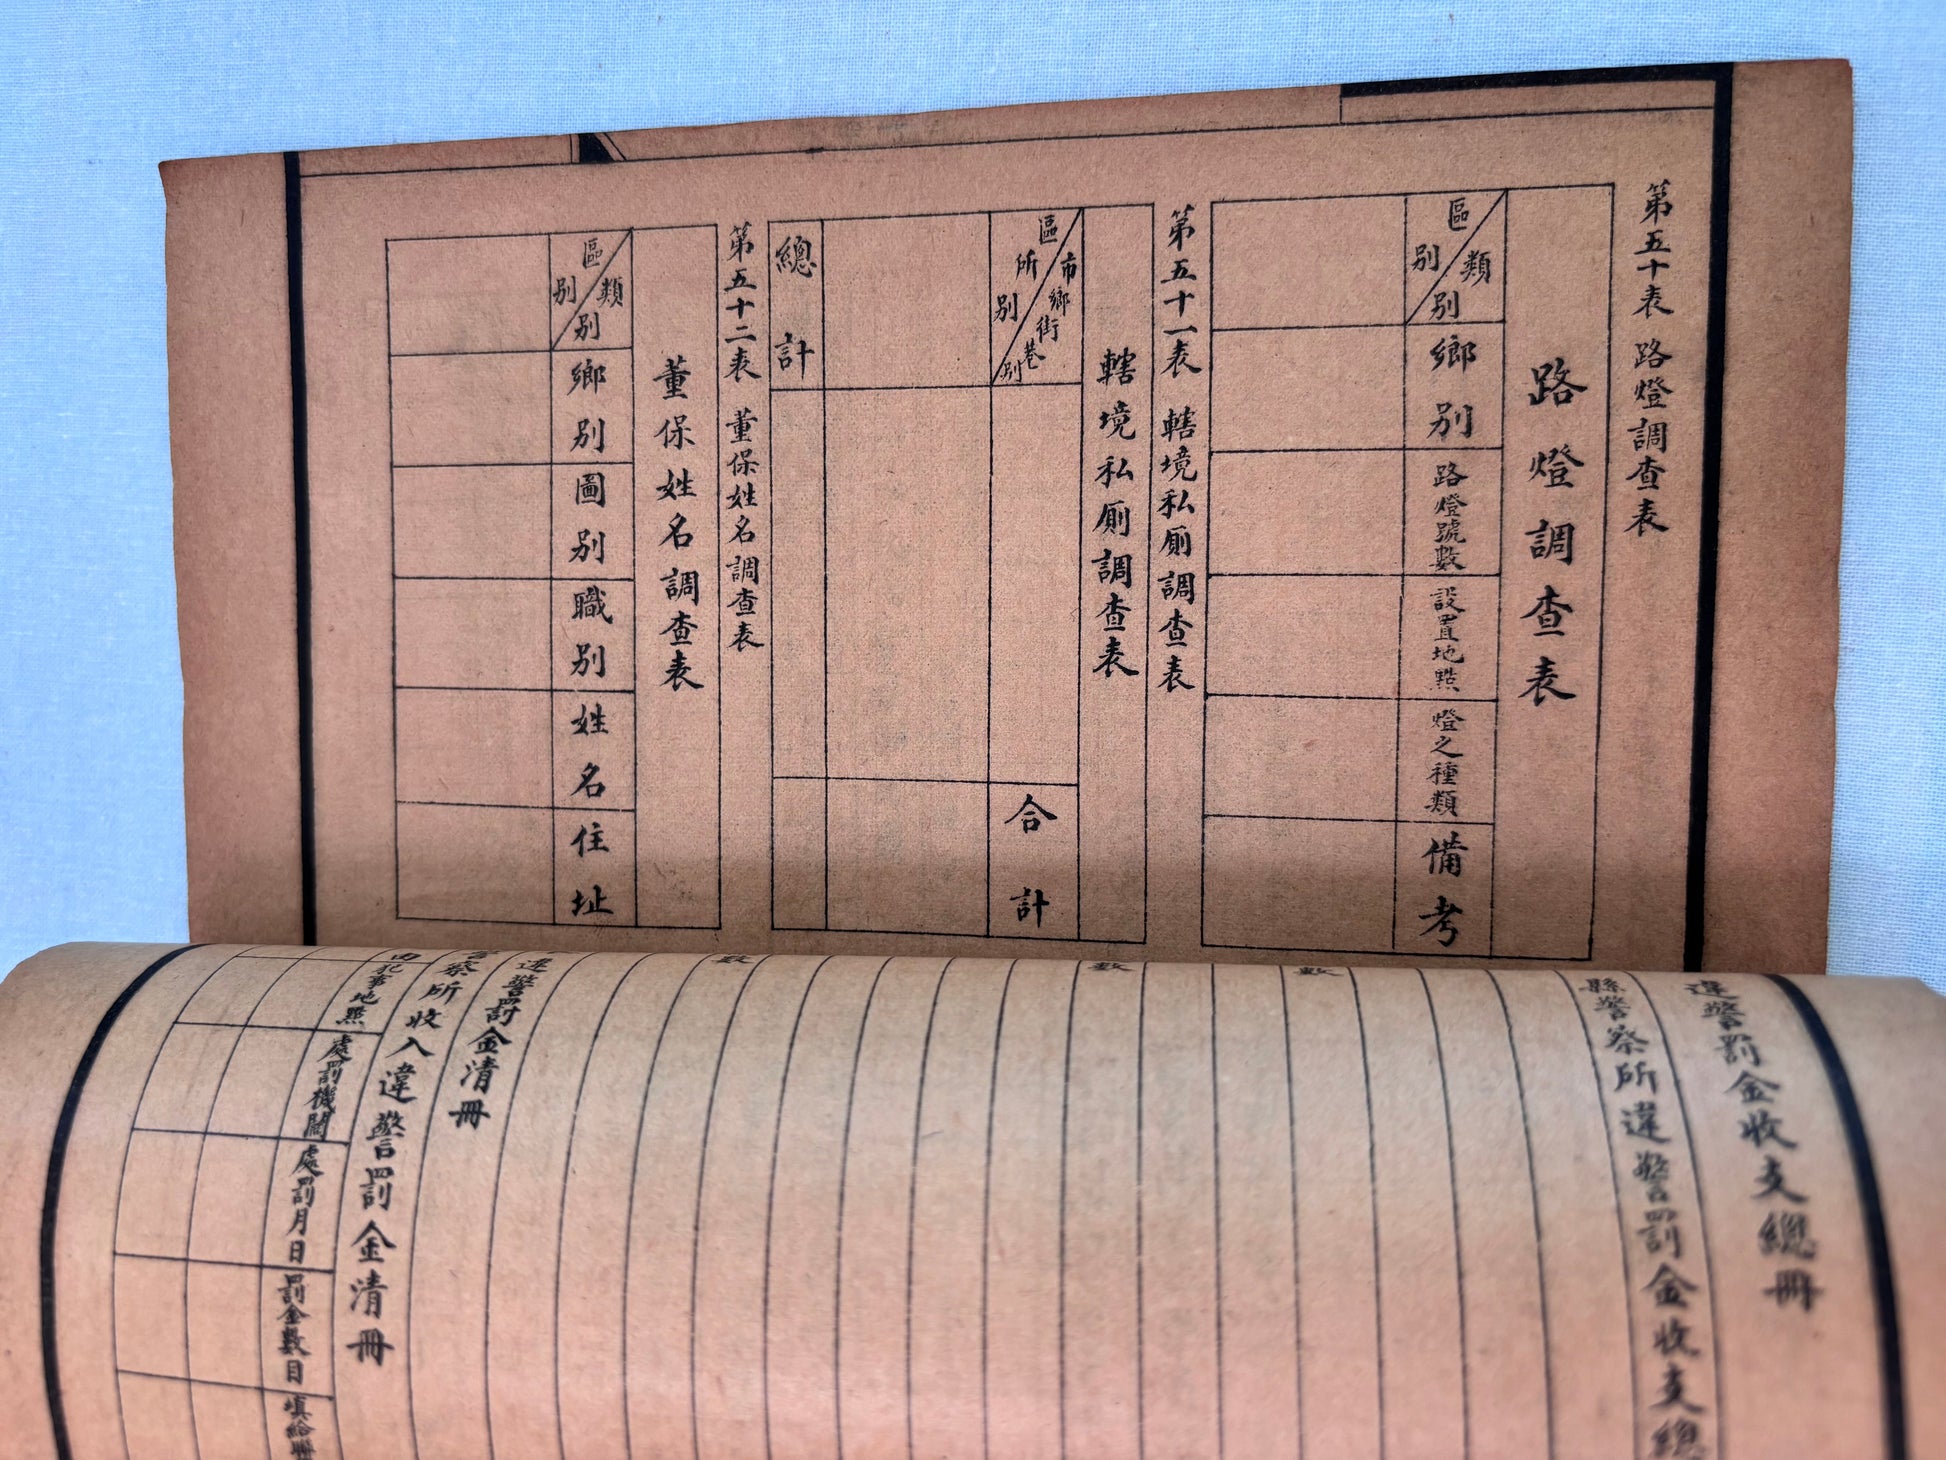 第五十表 路燈調查表
路燈調查表
區別
類別
鄉別
路燈號數
設置地點
燈之種類
備考
第五十一表 轄境私厠調查表
轄境私厠調查表
市鄉街巷別
區所別
合計
總計
第五十二表 董保姓名調查表
董保姓名調查表
區別
類別
鄉別
圖別
職別
姓名
住址
違警罰金收支總冊
縣警察所違警罰金收支總
數
數
數
違警罰金清冊
察所收入違警罰金清冊
犯事地點
處罰機關
處罰月日
罰金數目
填給聯